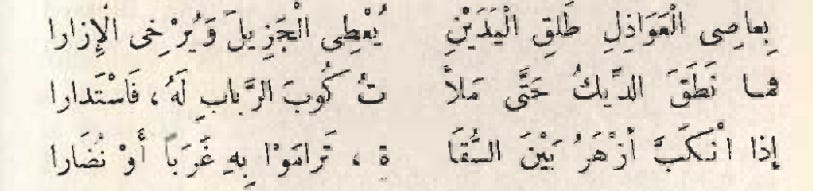 بِعاصِى الْعَوَاذِلِ طَلْقِ الْيَدَيْنِ يُعْطِى الْجَزِيلَ وَيُرْخِى الْإِزارا
فما نَطَقَ الدِّيكُ حَتَّى مَلأَ تُ كُوبَ الرَّبابِ لَهُ، فَاسْتَدارا
إذا انْكَبَّ أزْهَرُ بَيْنَ السُّقَا ةِ، تَرامَوْا بِهِ غَرَبًا أوْ نُضَارا